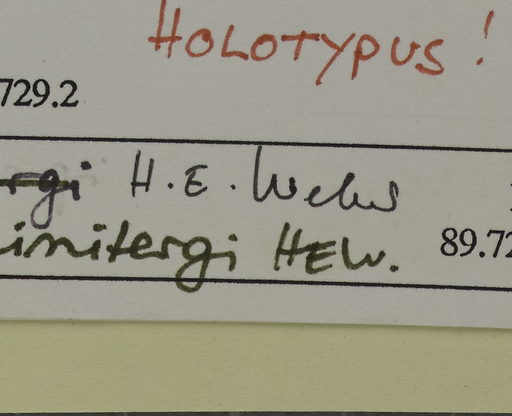 HOLOTYPUS!
729.2
rgi H.E. Weber
initergi HEW. 89.72